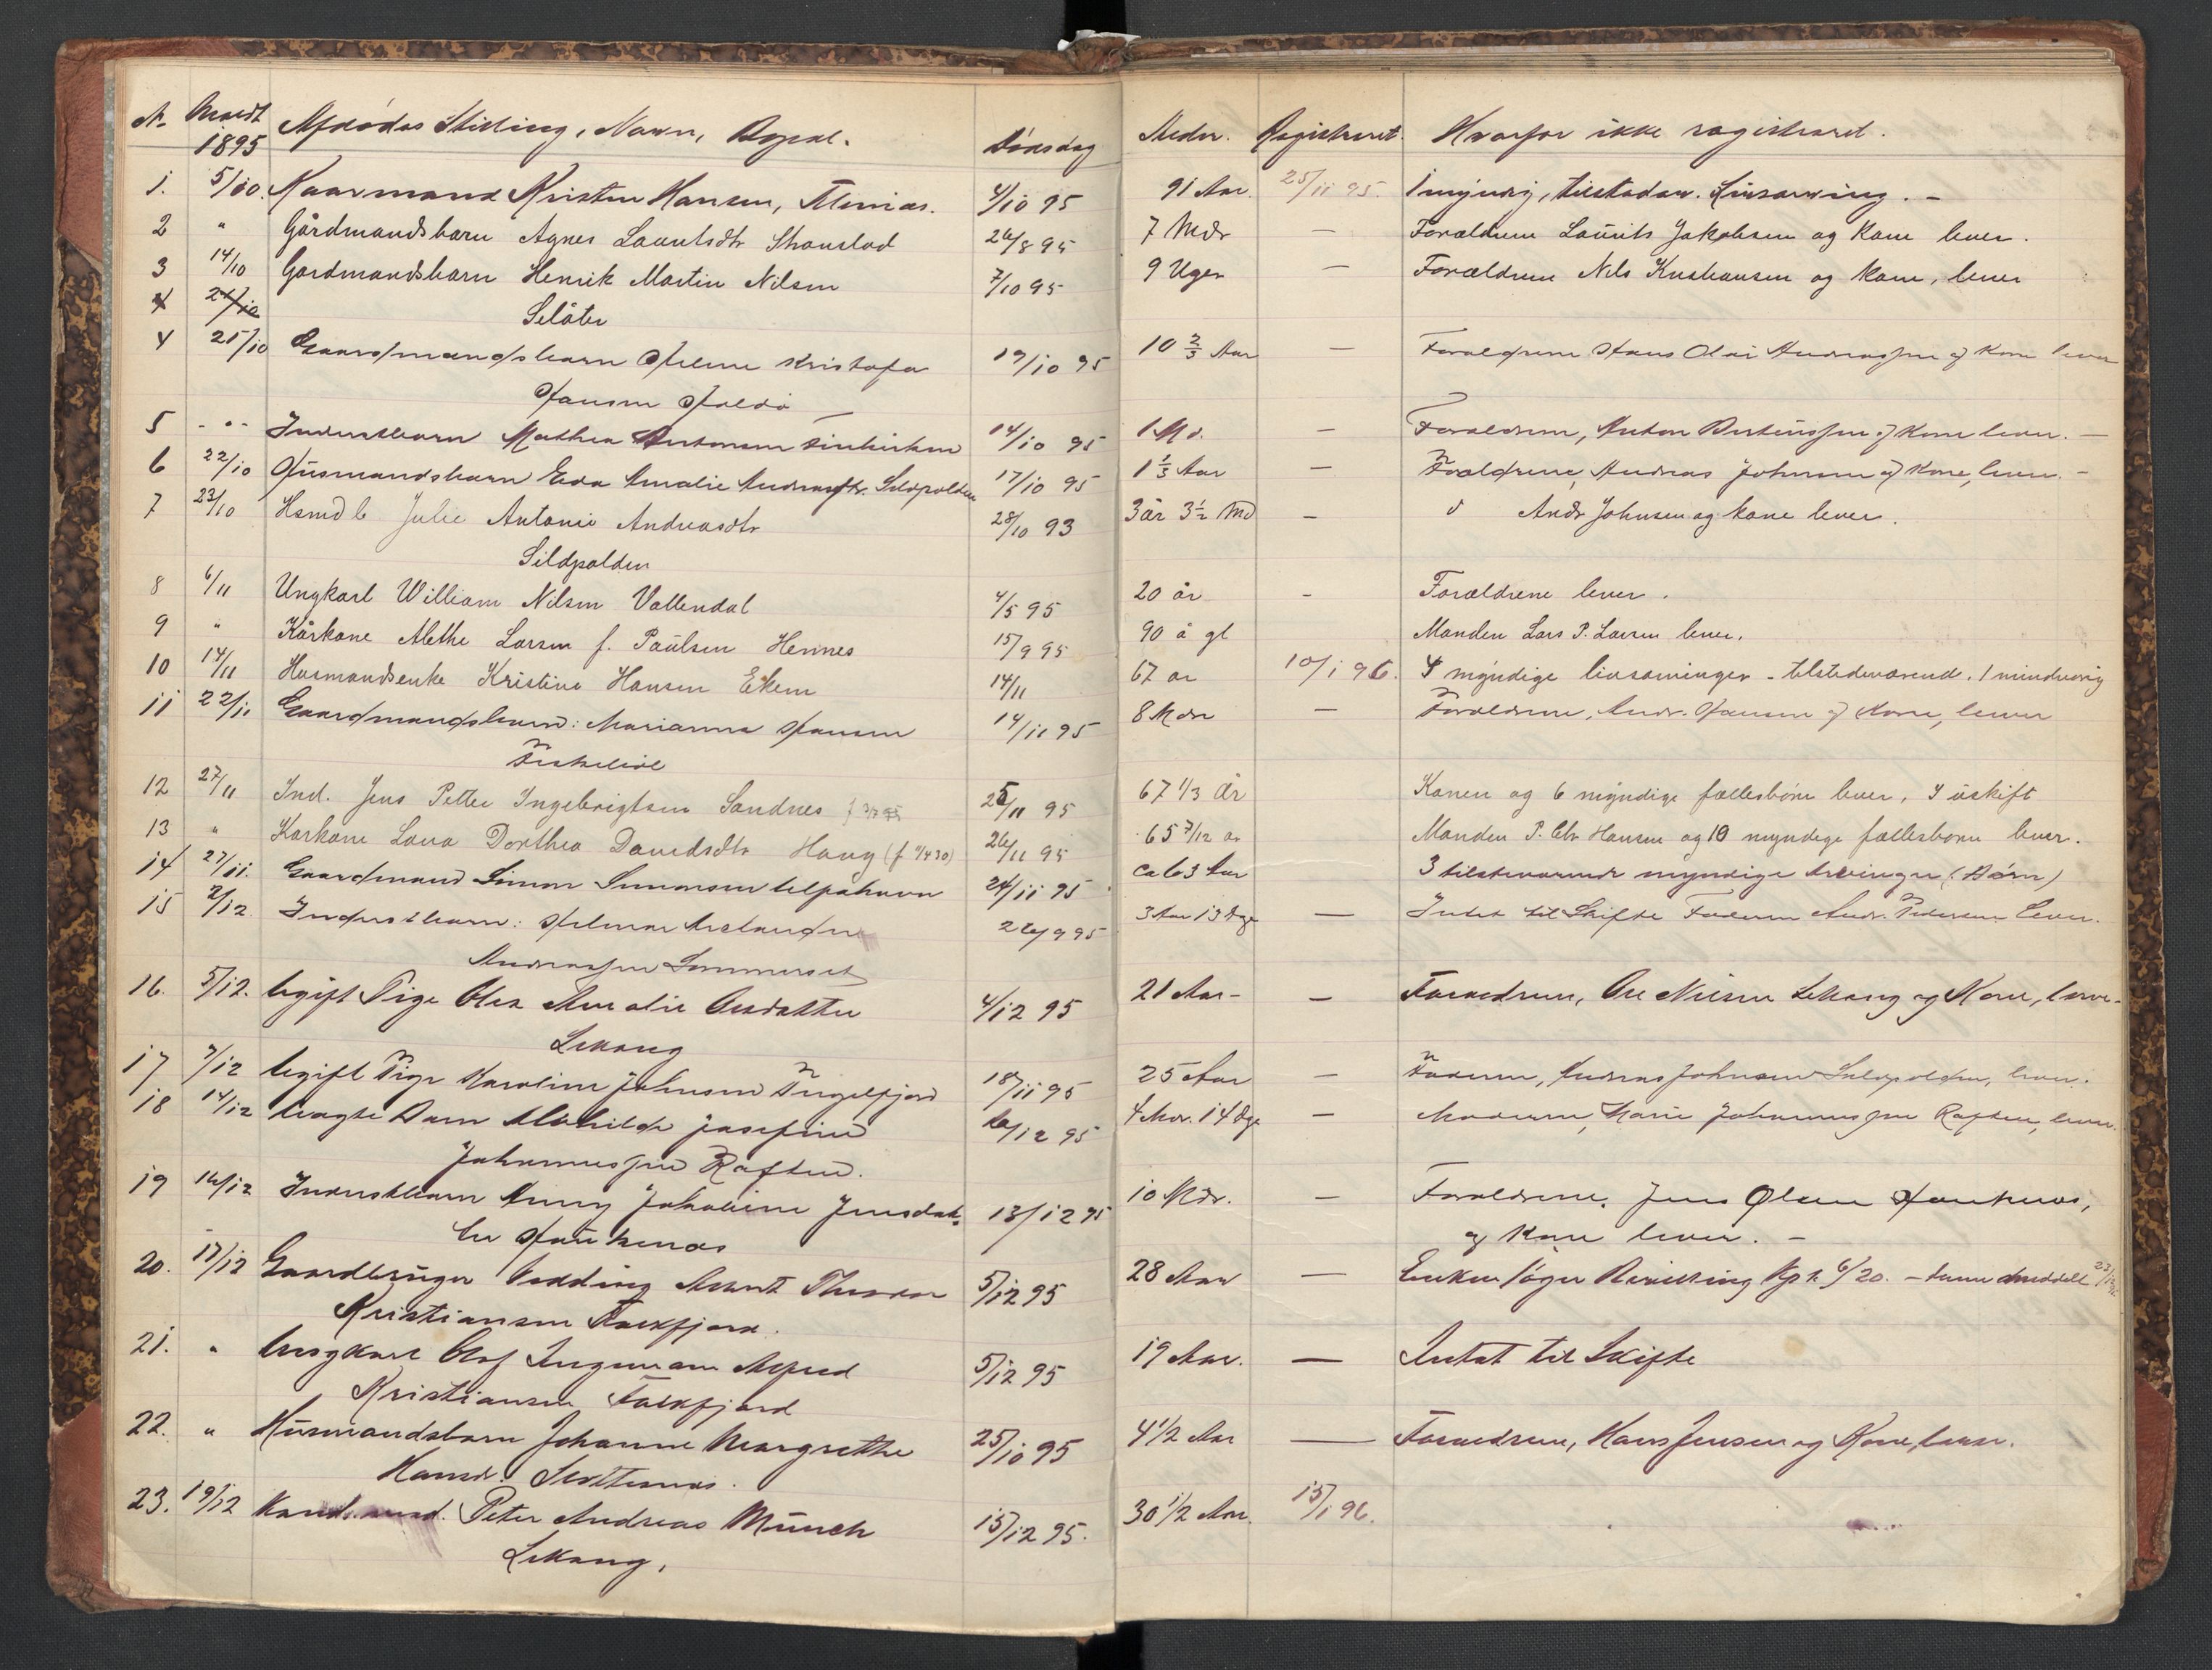 No Anmeldt 1895 Afdødes Stilling, Navn, Bopæl. Dødsdag Alder. Registreret. Hvorfor ikke registreret.
1. 5/10. Kaarmand Kristen Hansen, 4/10 95 91 Aar. 25/11 95. 1 myndig, tilstedev. Livsarving. -
2 " Gårdmandsbarn Agnes Lauritsdtr Stranstad 26/8 95 7 Mdr — Forældrene Laurits Jakobsen og Kone lever.
3 14/10 Gårdmandsbarn Henrik Martin Nilsen 7/10 95 9 Uger — Forældrene Nils og Kone, lever
4 24/10
Slåter
4 25/10 Gaardmandsbarn Helene Kristofa 19/10 95 10 2/3 Aar — Forældrene Hans Olai Andreassen og Kone lever
Hansen Holdø
5 - " - Inderstbarn Mathea Antonsen 14/10 95 1 Md. — Forældrene, Anton og Kone lever. —
6 22/10 Husmandsbarn Eda Amalie Andreasdtr. Sildpolden 17/10 95 1 1/3 Aar — Forældrene, Andreas Johnsen og Kone, lever. -
7 23/10 Hsmdb Julie Antonie Andreasdtr 28/10 93 3 år 3 1/2 Md — d Andr Johnsen og kone lever.
Sildpolden
8 6/11 Ungkarl William Nilsen Vallendal 4/5 95 20 år - Forældrene lever.
9 " Kårkone Alethe Larsen f. Paulsen Hennes 15/9 95 90 å gl Manden Lars P. Larsen lever.
10 14/11 Husmandsenke Kristine Hansen Ekren 14/11 67 ar 10/1 96. 4 myndige livsarvinger - tilstedeværend. 1 mindreårig
11 22/11 Gaardmandsbarn: Marianna Hansen 14/11 95 8 Mdr — Forældrene, Andr. Hansen og Kone, lever
Fiskebøl
12 27/11 Ind. Jens Petter Ingebrigtsen Sandnes 25/11 95 67 1/3 år Konen og 6 myndige fællesbörn lever, I uskift
13 " Karkone Lava Dorthea Davidsdtr Haug 26/11 95 65 7/12 ar Manden P. Chr Hansen og 10 myndege fællesborn lever.
14 27/11. Gaardmand Simon Simonsen Ulvøhavn 24/11 95 ca 63 Aar 3 tilsteværende myndige Arvinger (Børn)
15 2/12. Inderstbarn: Hilmar 26/9 95 3 Aar 13 Dge — Intet til Skifte Faderen Andr. Pedersen lever.
Andreassen Sommerset
16. 5/12. Ugift Pige Olea Amalie Olesdatter 4/12 95 21 Aar - — Forældrene, Ole Nilsen Lekang og Kone, lever -
Lekang
17 7/12 Ugift Pige Karoline Johnsen Ingelfjord 18/11 95 25 Aar — Faderen, Andreas Johnsen Sildpolden, lever.
18 14/12 Uægte Barn Mathilde Josefine 10/12 95 4 Mdr. 14 Dge — Moderen, Marie Johannessen Raften, lever.
Johannessen Raften.
19 16/12 Inderstbarn Anny Jakobine Jensdat- 13/12 95 10 Mdr. — Forældrene, Jens Olsen Haukenæs,
ter Haukenæs og Kone lever. -
20. 17/12 Gaardbruger Hedding Arent Theodor 5/12 95 28 Aar — Enken søger Bevilling 6/20. - denne meddelt
Kristiansen Falkfjord.
21. " Ungkarl Olaf Ingemann Alfred 5/12 95 19 Aar. — Intet til Skifte
Kristiansen Falkfjord
22. " Husmandsbarn Johanne Margrethe 25/10 95 4 1/2 Aar — Forældrene, Hans Jensen og Kone, lever.
Hansdr. Slottenæs.
23. 19/12 Peter Andreas Münch 15/12 95. 30 1/2 Aar. 15/1 96.
Lekang,